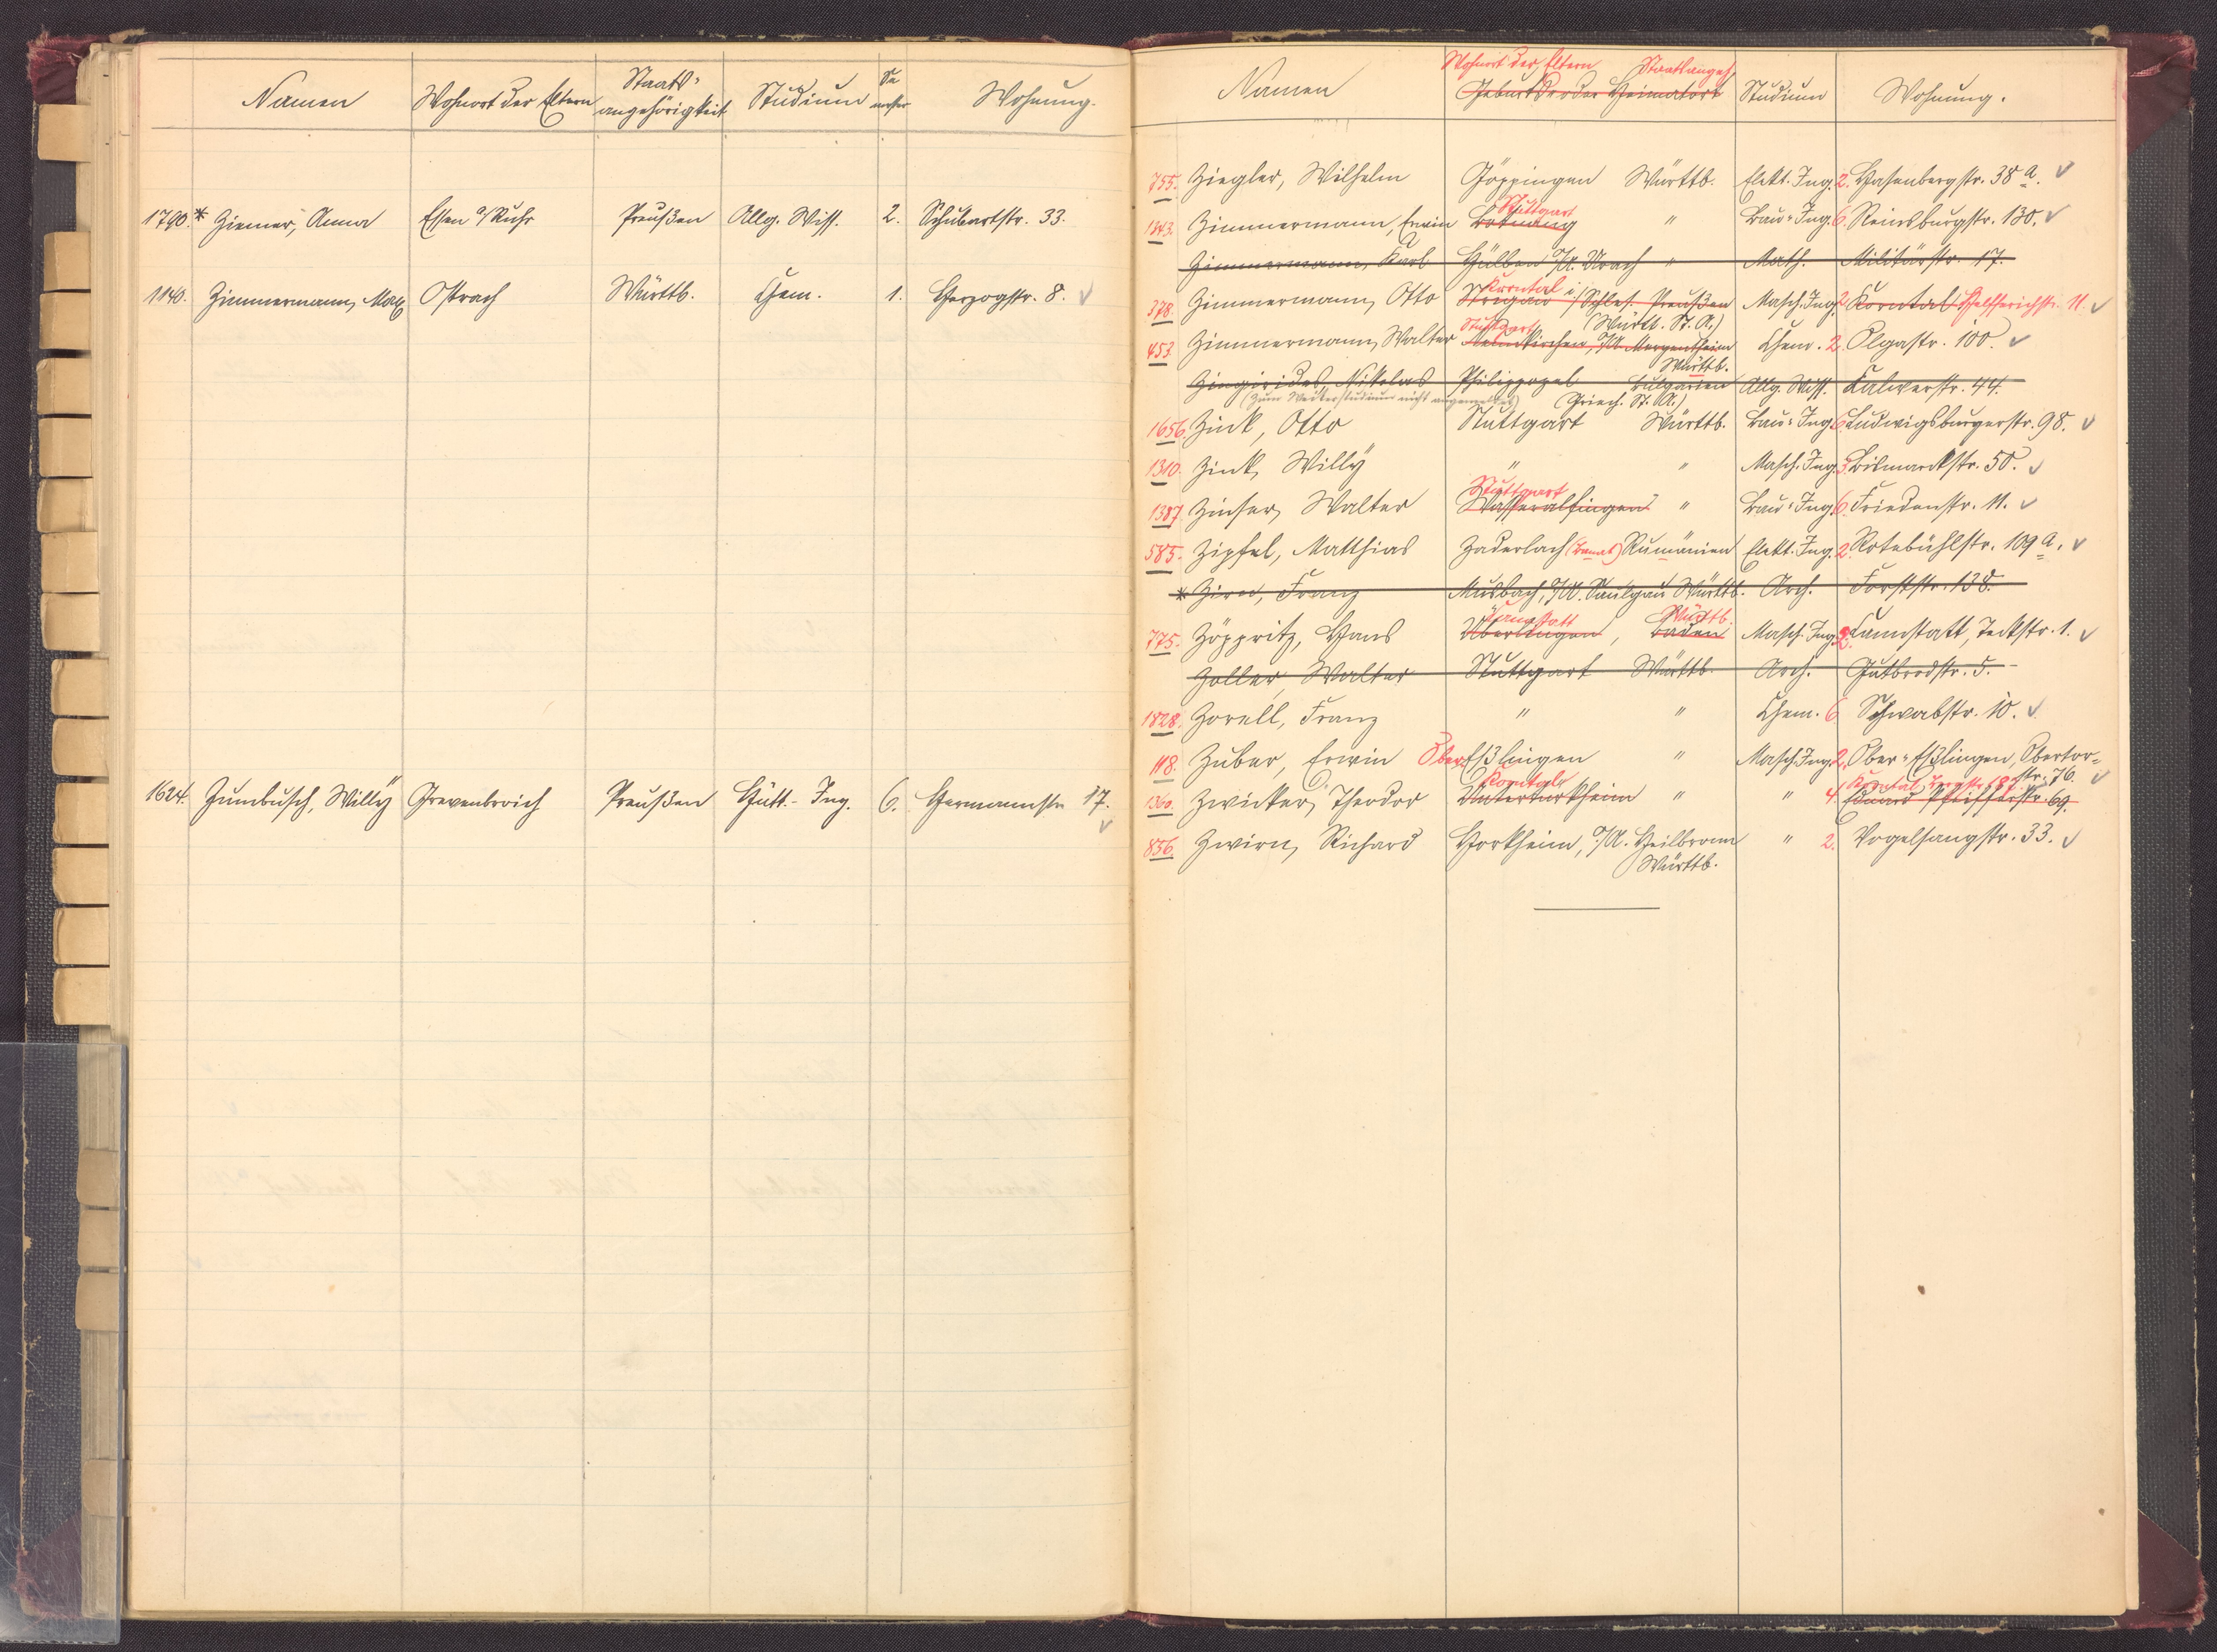 Namen Wohnort der Eltern Staats- angehörigkeit Studium Se mester Wohnung.
1790. * Ziemer, Anna Essen a/Ruhr Preußen Allg. Wiss. 2. Schubartstr. 33.
1140. Zimmermann, Max Ostrach Württb. Chem. 1. Herzogstr. 8. ✓
1624. Zumbusch, Willy Grevenbroich Preußen Hütt.-Ing. 6. Hermannstr. 17. ✓
Wohnort der Eltern Staatsangeh.
Namen Geburts oder Heimatort Studium Wohnung.
755. Ziegler, Wilhelm Göppingen Württb. Elekt. Ing. 2. Hasenbergstr. 38 a. ✓
Stuttgart
1343. Zimmermann, Erwin Botnang " Bau-Ing. 6. Reinsburgstr. 130. ✓
Zimmermann, Karl Hülben O/A. Urach " Math. Militärstr. 17.
Korntal
378. Zimmermann, Otto Striegau i/Schles. Preußen Masch. Ing. 2. Korntal Helfferichstr. 11. ✓
(Württ. St. A.)
Stuttgart
453. Zimmermann, Walter Neunkirchen, O/A. Mergentheim Chem. 2. Olgastr. 100. ✓
Württb.
Zingirides, Nikolas Philippopel Bulgarien Allg. Wiss. Kalwerstr. 44.
(Zum Weiterstudium nicht angemeldet) (Griech. St. A.)
1656. Zink, Otto Stuttgart Württb. Bau-Ing. 6. Ludwigsburgerstr. 98. ✓
1310. Zink, Willy " " Masch. Ing. 3. Bismarckstr. 50. ✓
Stuttgart
1387. Zinser, Walter Wasseralfingen " Bau-Ing. 6. Friedenstr. 11. ✓
585. Zipfel, Matthias Zaderlach (Banat) Rumänien Elekt. Ing. 2. Rotebühlstr. 109 a. ✓
* Zirn, Franz Musbach, O/A. Saulgau Württb. Arch. Forststr. 138.
Cannstatt Württb.
775. Zöppritz, Hans Überlingen, Baden Masch. Ing. 2. Cannstatt, Teckstr. 1. ✓
Zoller, Walter Stuttgart Württb. Arch. Gutbrodstr. 5.
1828. Zorell, Franz " " Chem. 6 Schwabstr. 10. ✓
118. Zuber, Erwin Ober Eßlingen " Masch. Ing. 2. Ober-Eßlingen, Obertor-
str. 76. ✓
Korntal
1360. Zwicker, Theodor Untertürkheim " " 4. Eduard Pfeifferstr. 69.
856. Zwirn, Richard Horkheim, O/A. Heilbronn " 2. Vogelsangstr. 33. ✓
Württb.